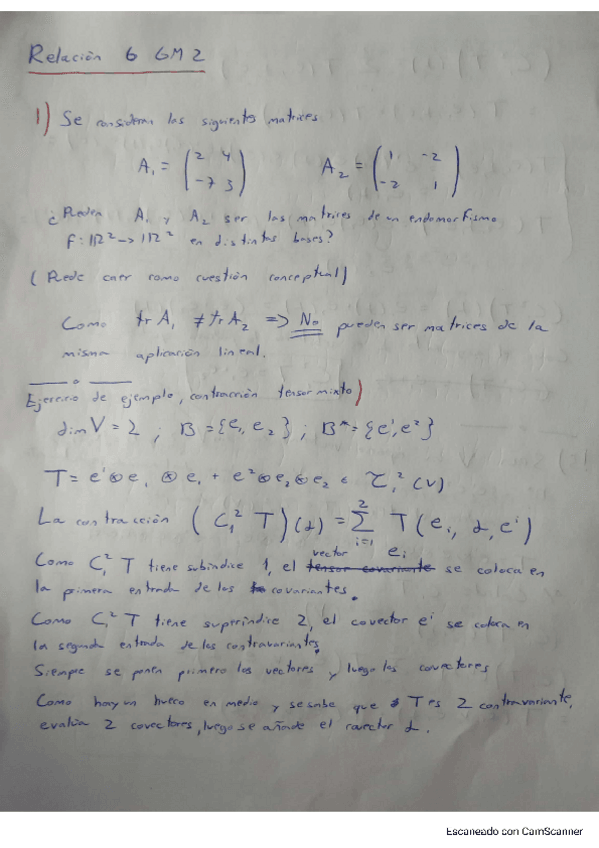 Relación 6 GM2
1) Se consideran las siguientes matrices
A₁ = (2 4; -7 3) A₂ = (1 -2; -2 1)
¿Pueden A₁ y A₂ ser las matrices de un endomorfismo
f: ℝ² -> ℝ² en distintas bases?
(Puede caer como cuestión conceptual)
Como tr A₁ ≠ tr A₂ => No pueden ser matrices de la
misma aplicación lineal.
Ejercicio de ejemplo, contracción tensor mixto)
dim V = 2 ; B = {e₁, e₂} ; B* = {e¹, e²}
T = e¹ ⊗ e₁ ⊗ e₁ + e² ⊗ e₂ ⊗ e₂ ∈ τ₁² (V)
La contracción (C₁² T)(α) = Σ T(eᵢ, α, eⁱ)
i=1 2
vector eᵢ
Como C₁² T tiene subíndice 1, el tensor covariante se coloca en
la primera entrada de los covariantes.
Como C₁² T tiene superíndice 2, el covector eⁱ se coloca en
la segunda entrada de los contravariantes.
Siempre se ponen primero los vectores y luego los covectores
Como hay un hueco en medio y se sabe que T es 2 contravariante,
evalúa 2 covectores, luego se añade el α.
Escaneado con CamScanner